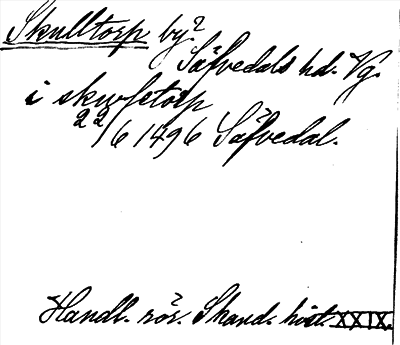 Skulltorp by?
Säfvedals hd. Vg.
i skulfetorp
22/6 1496 Säfvedal.
Handl. rör. Skand. hist. XXIX.